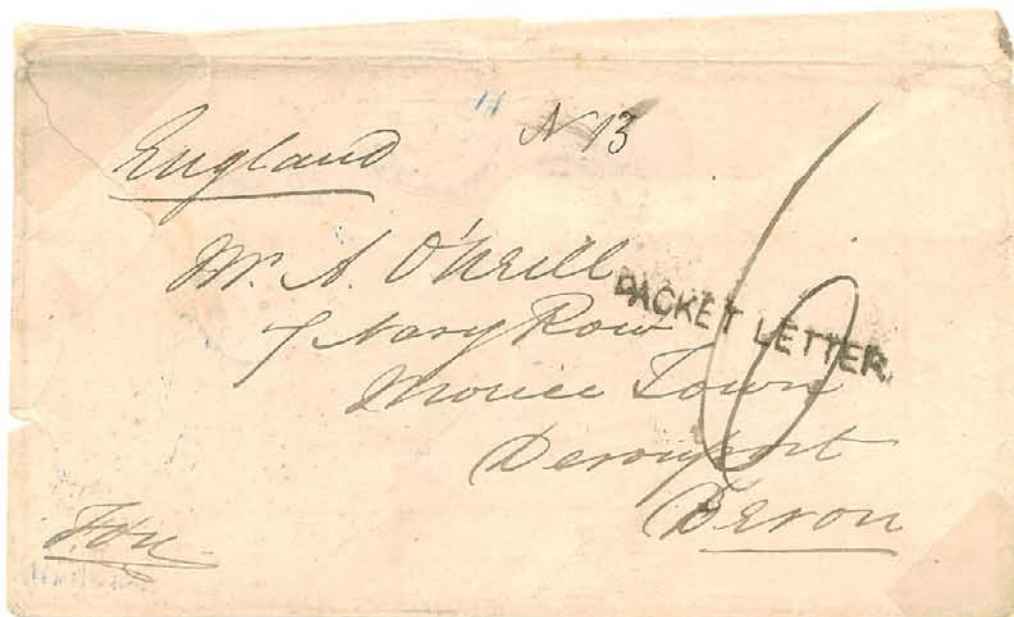 N 13
England
Mr. A. O'Neill
7 Navy Row
Morice Town
Devonport
Devon
PACKET LETTER
6